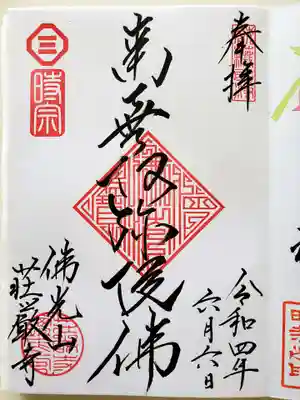 奉拝
令和四年
六月六日
南無阿弥陀佛
時宗
佛光山
荘厳寺